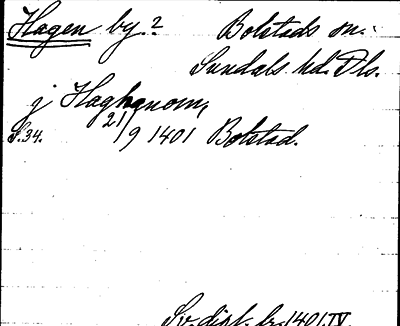 Hagen by.? Bolstads sn.
Sundals hd. Dls.
j Haghanom,
S.34. 21/9 1401 Bolstad.
Sv. dipl. fr. 1401 IV